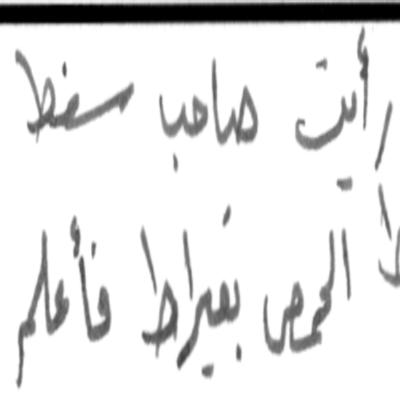 رأيت صاحب سفط
الحمص بقيراط فأعلم